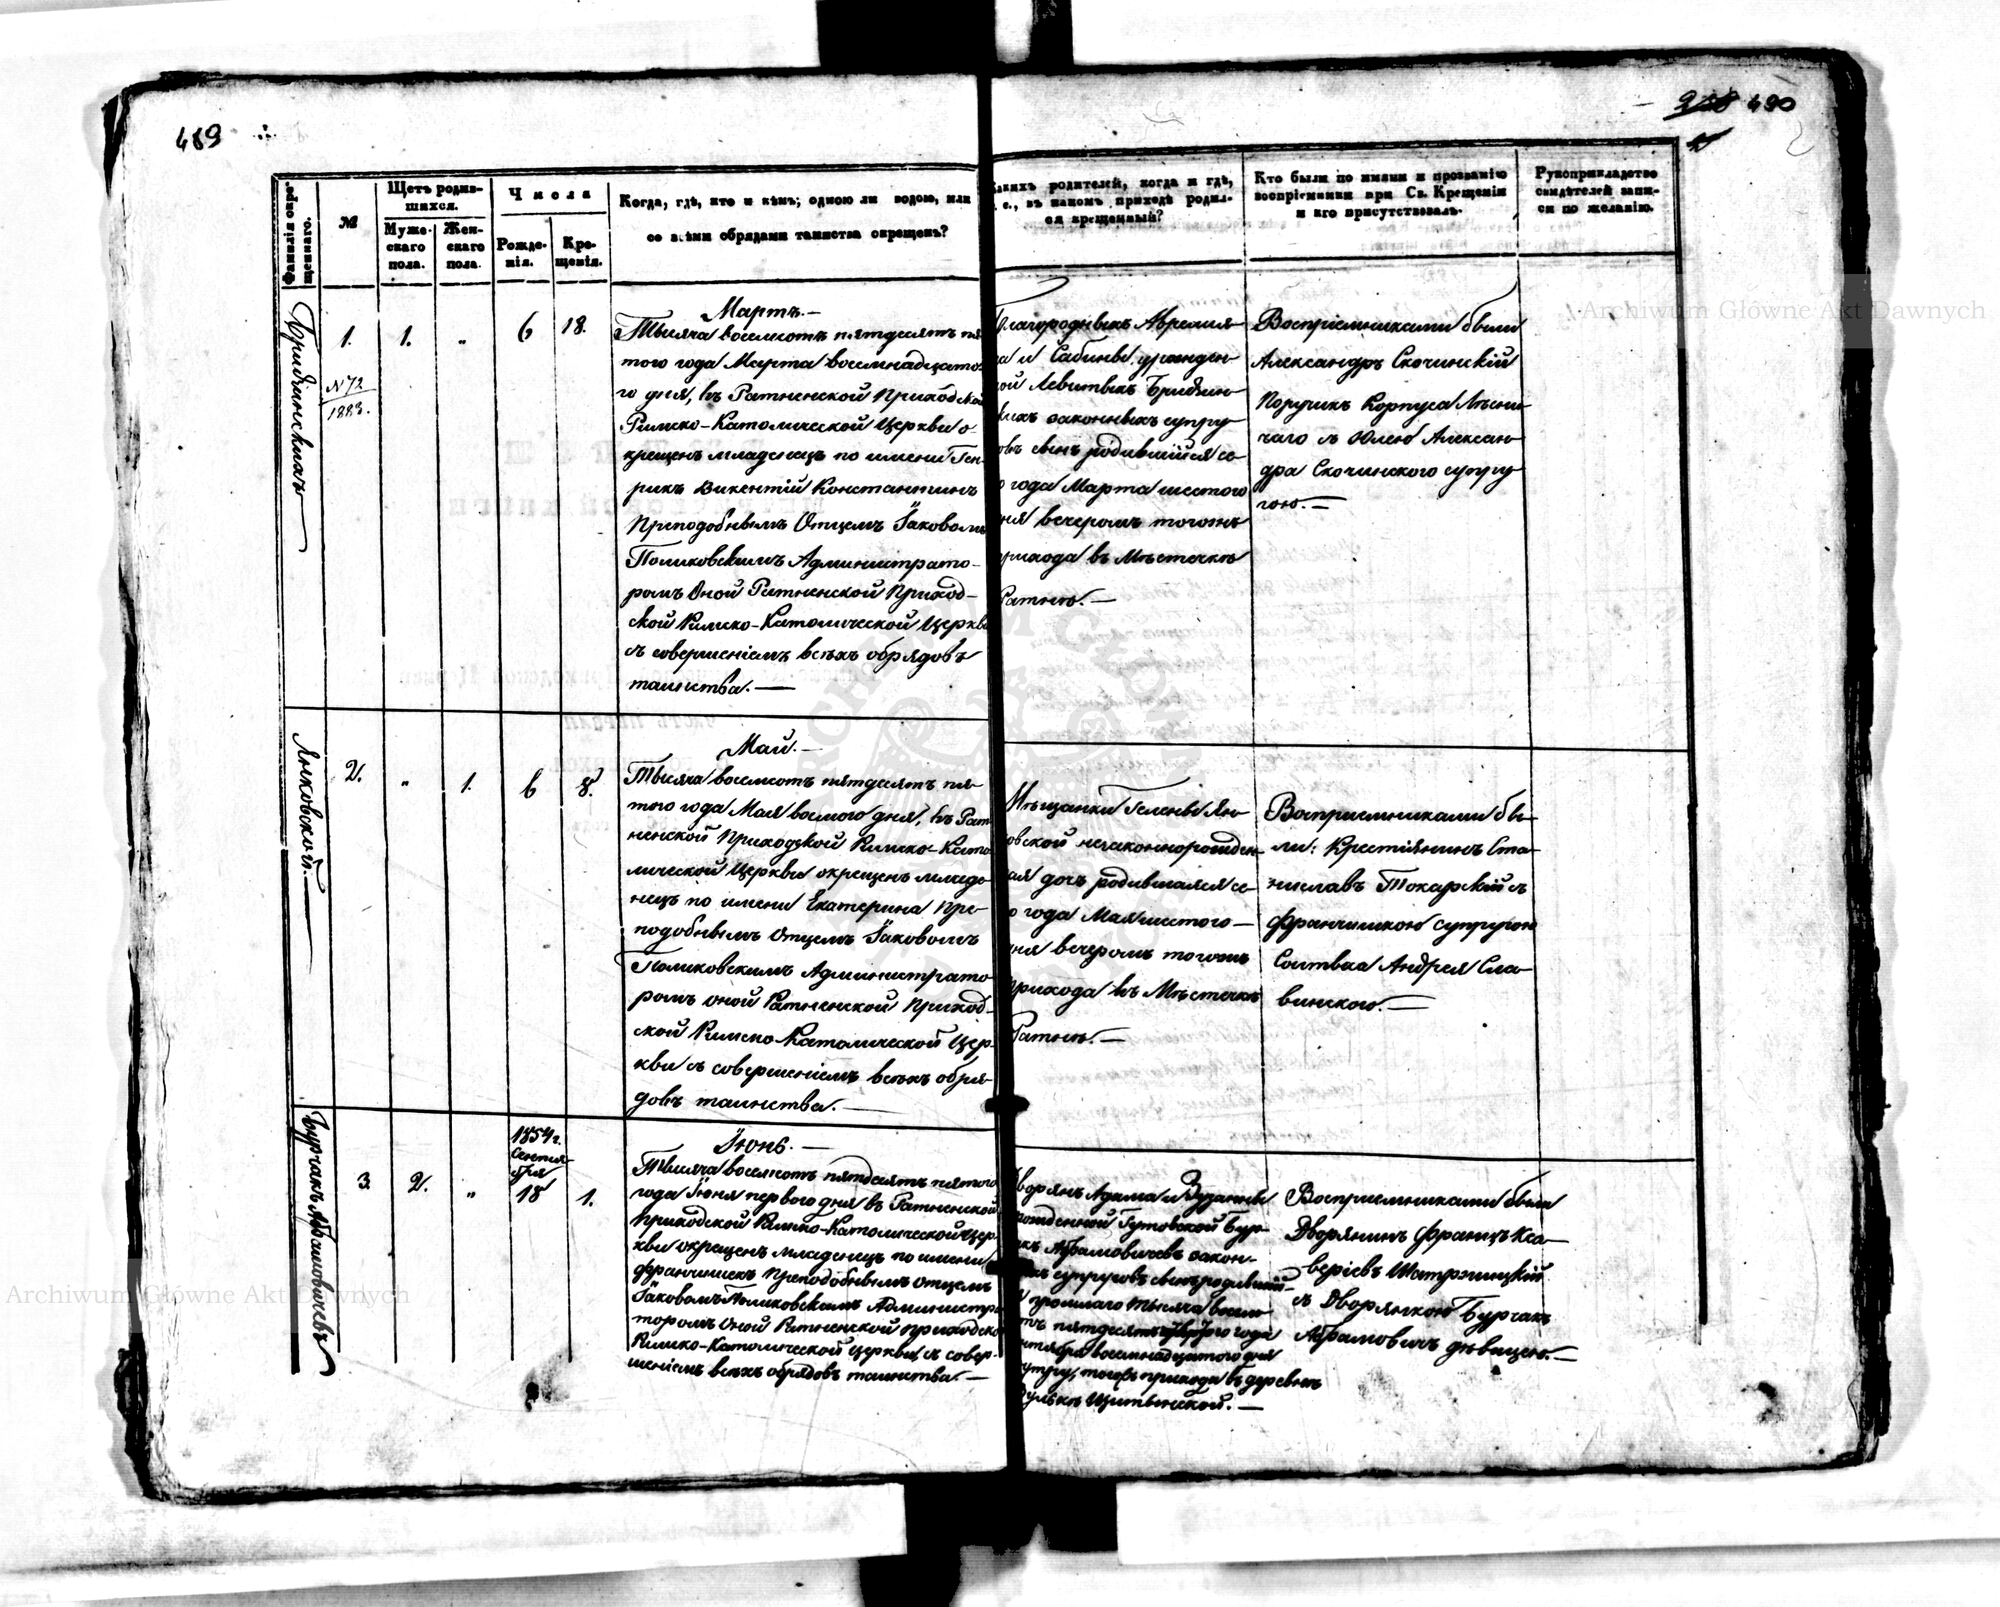 489
238 490
Фамилія окрещеннаго.
№
Щетъ родившихся.
Мужескаго пола.
Женскаго пола.
Числа
Рожденія.
Крещенія.
Когда, гдѣ, кто и кѣмъ; одною ли водою, или
со всѣми обрядами таинства окрещенъ?
какихъ родителей, когда и гдѣ,
т. е., въ какомъ приходѣ родился крещенный?
Кто были по имени и прозванію
воспріемники при Св. Крещеніи
и кто присутствовалъ.
Рукоприкладство
свидѣтелей записи по желанію.
1.
N 72
1883.
1.
„
6
18.
Мартъ.—
Тысяча восемсотъ пятдесятъ пя-
того года Марта восемнадцато-
го дня, въ Ратненской Приходской
Римско-Католической Церкви о-
крещенъ младенецъ по имени Ген-
рикъ Викентій Константинъ
Преподобнымъ Отцемъ Іаковомъ
Поликовскимъ Администрато-
ромъ Оной Ратненской Приход-
ской Римско-Католической Церкви
съ совершеніемъ всѣхъ обрядовъ
таинства.—
Благородныхъ Аврелія
и Сабины урожден-
ной Левитыхъ
законныхъ супру-
говъ сынъ родившійся се-
го года Марта шестого
дня вечеромъ тогожъ
прихода въ Мѣстечкѣ
Ратнѣ.—
Воспріемниками были
Александръ Скочинскій
Поручикъ Корпуса Лѣсни-
чаго съ Юлею Алексан-
дра Скочинского супру-
гою.—
Янковской.—
2.
„
1.
6
8.
Май.—
Тысяча восемсотъ пятдесятъ пя-
того года Мая восмого дня, въ Рат-
ненской Приходской Римско-Като-
лической Церкви окрещенъ младе-
нецъ по имени Екатерина Пре-
подобнымъ Отцемъ Іаковомъ
Поликовскимъ Администрато-
ромъ оной Ратненской Приход-
ской Римско Католической Цер-
кви съ совершеніемъ всѣхъ обря-
довъ таинства.—
Мѣщанки Гелены Ян-
ковской незаконнорожден-
ая дочъ родившаяся се-
го года Мая шестого—
дня вечеромъ тогожъ
прихода въ Мѣстечкѣ
Ратнѣ.—
Воспріемниками бы-
ли: Крестіянинъ Ста-
ниславъ Токарскій съ
Францишкою супругою
Андрея Сла-
винскою.—
Бурчакъ Абрамовичевъ
3.
2.
„
1854 г.
Сентя-
бря
18
1.
Іюнь.—
Тысяча восемсотъ пятдесятъ пятого
года Іюня первого дня въ Ратненской
Приходской Римско-Католической Цер-
кви окрещенъ младенецъ по имени
Францишекъ Преподобнымъ Отцемъ
Іаковомъ Поликовскимъ Администра-
торомъ Оной Ратненской Приходско
Римско-Католической Церкви, съ совер-
шеніемъ всѣхъ обрядовъ таинства.—
Дворянъ Адама и Зузанны
рожденной Гутовской Бур-
чакъ Абрамовичевъ закон-
ныхъ супруговъ сынъ родившій-
ся прошлаго тысяча восем-
сотъ пятдесятъ года
Сентября восемнадцатого дня
утру, тогожъ прихода въ деревнѣ
Щитынской.—
Воспріемниками были
Дворянинъ Францъ Кса-
веріевъ
съ Дворянкою Бурчакъ
Абрамовичъ дѣвицею.—
Archiwum Główne Akt Dawnych
Archiwum Główne Akt Dawnych